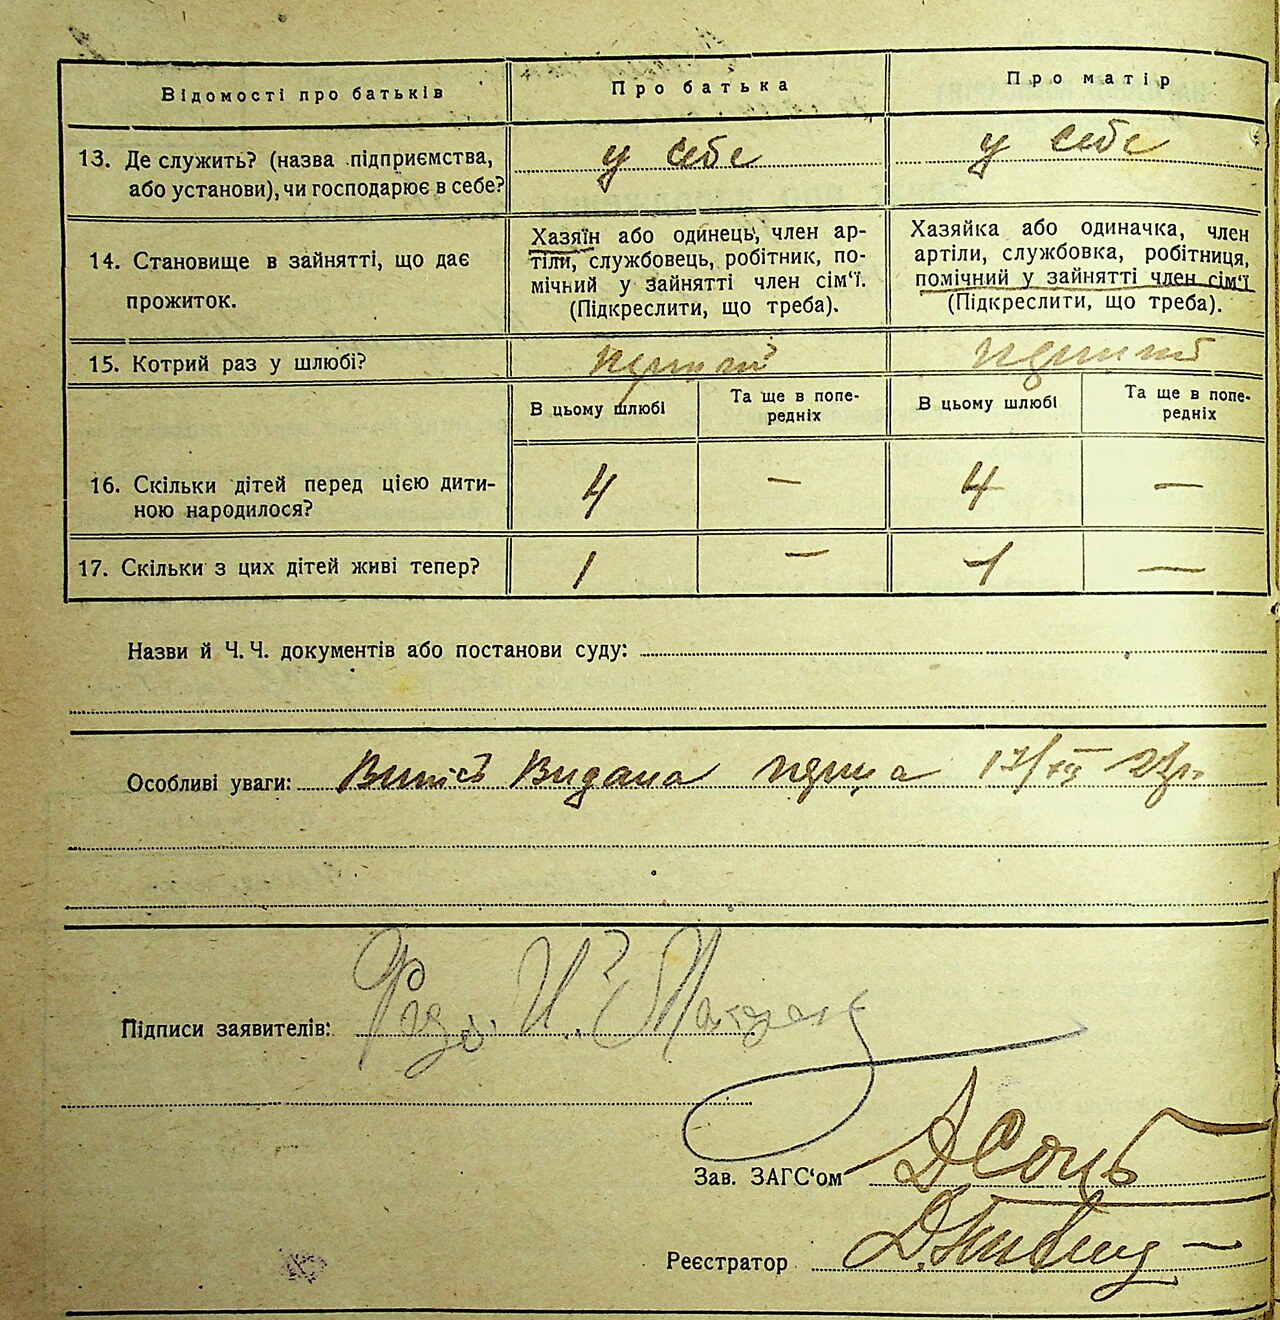 Відомості про батьків
Про батька
Про матір
13. Де служить? (назва підприємства,
або установи), чи господарює в себе?
у себе
у себе
14. Становище в зайнятті, що дає
прожиток.
Хазяїн або одинець, член ар-
тіли, службовець, робітник, по-
мічний у зайнятті член сім'ї.
(Підкреслити, що треба).
Хазяйка або одиначка, член
артіли, службовка, робітниця,
помічний у зайнятті член сім'ї
(Підкреслити, що треба).
15. Котрий раз у шлюбі?
В цьому шлюбі
Та ще в попе-
редніх
В цьому шлюбі
Та ще в попе-
редніх
16. Скільки дітей перед цією дити-
ною народилося?
4
—
4
—
17. Скільки з цих дітей живі тепер?
1
—
1
—
Назви й Ч. Ч. документів або постанови суду:
Особливі уваги: Видана
Підписи заявителів:
Зав. ЗАГС'ом
Реєстратор